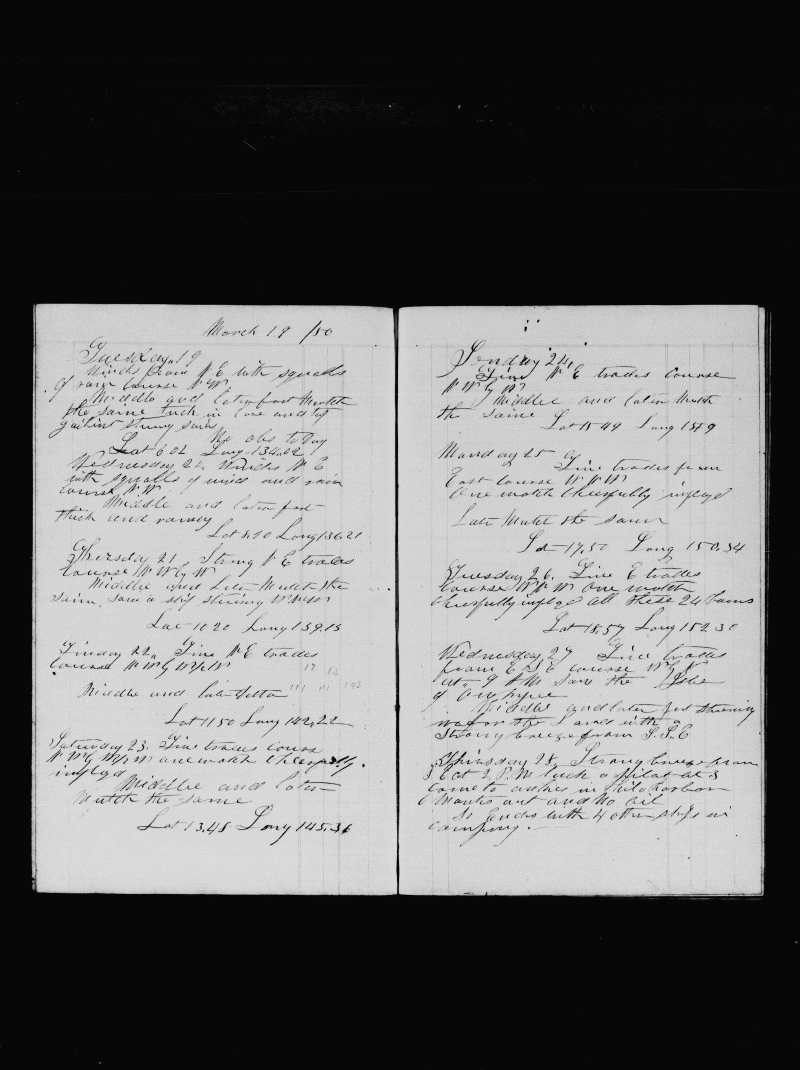 March 19 /50
Tuesday 19
Winds from N E with squalls
of rain course N W
Middle and later part Much
the same
No obs to Day
Lat 6 02 Long 134.02
Wednesday 20 Winds N E
with squalls of wind and rain
course N W
Middle and later part
thick and rainey
Lat Long 136.21
Thursday 21 Strong N E trades
course N W by W
Middle and Later Much the
same. Saw a sail steering
Lat 10 20 Long 139.13
Friday 22, Fine N E trades
course
17 13
Middle and late
Lat 11 50 Long 142,22
Saturday 23, Fine trades course
one watch cheerfully
imployd
Middle and later
Mutch the same
Lat 13,45 Long 145,36
Sunday 24,
Fine N E trades course
N W by W
Middle and later Mutch
the same
Lat 15 44 Long 1
Monday 25
Fine trades from
East course W N W
One watch cheerfully imployd
Late Mutch the same
Lat 17,50 Long 150,34
Tuesday 26, Fine E trades
course W N W one watch
cheerfully imployd all these 24 hours
Lat 18,57 Long 152 30
Wednesday 27 Fine trades
from E S E course
at 9 A M saw the Isle
of Owhyee
Middle and later part steering
along the Land with a
strong breeze from S.S.E
Thursday 28, Strong breeze from
S E at 2, P.M took a pilot at 3
came to anchor in Hilo harbor
6 Months out and No oil
So Ends with 4 other ships in
company.